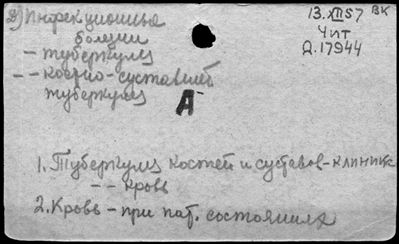 2) Инфекционные
болезни
13.XII57 ВК
Чит
Д.17944
– туберкулез
– – костно-суставной
туберкулез
А
1. Туберкулез костей и суставов – клиника
– – кровь
2. Кровь – при пат. состояниях